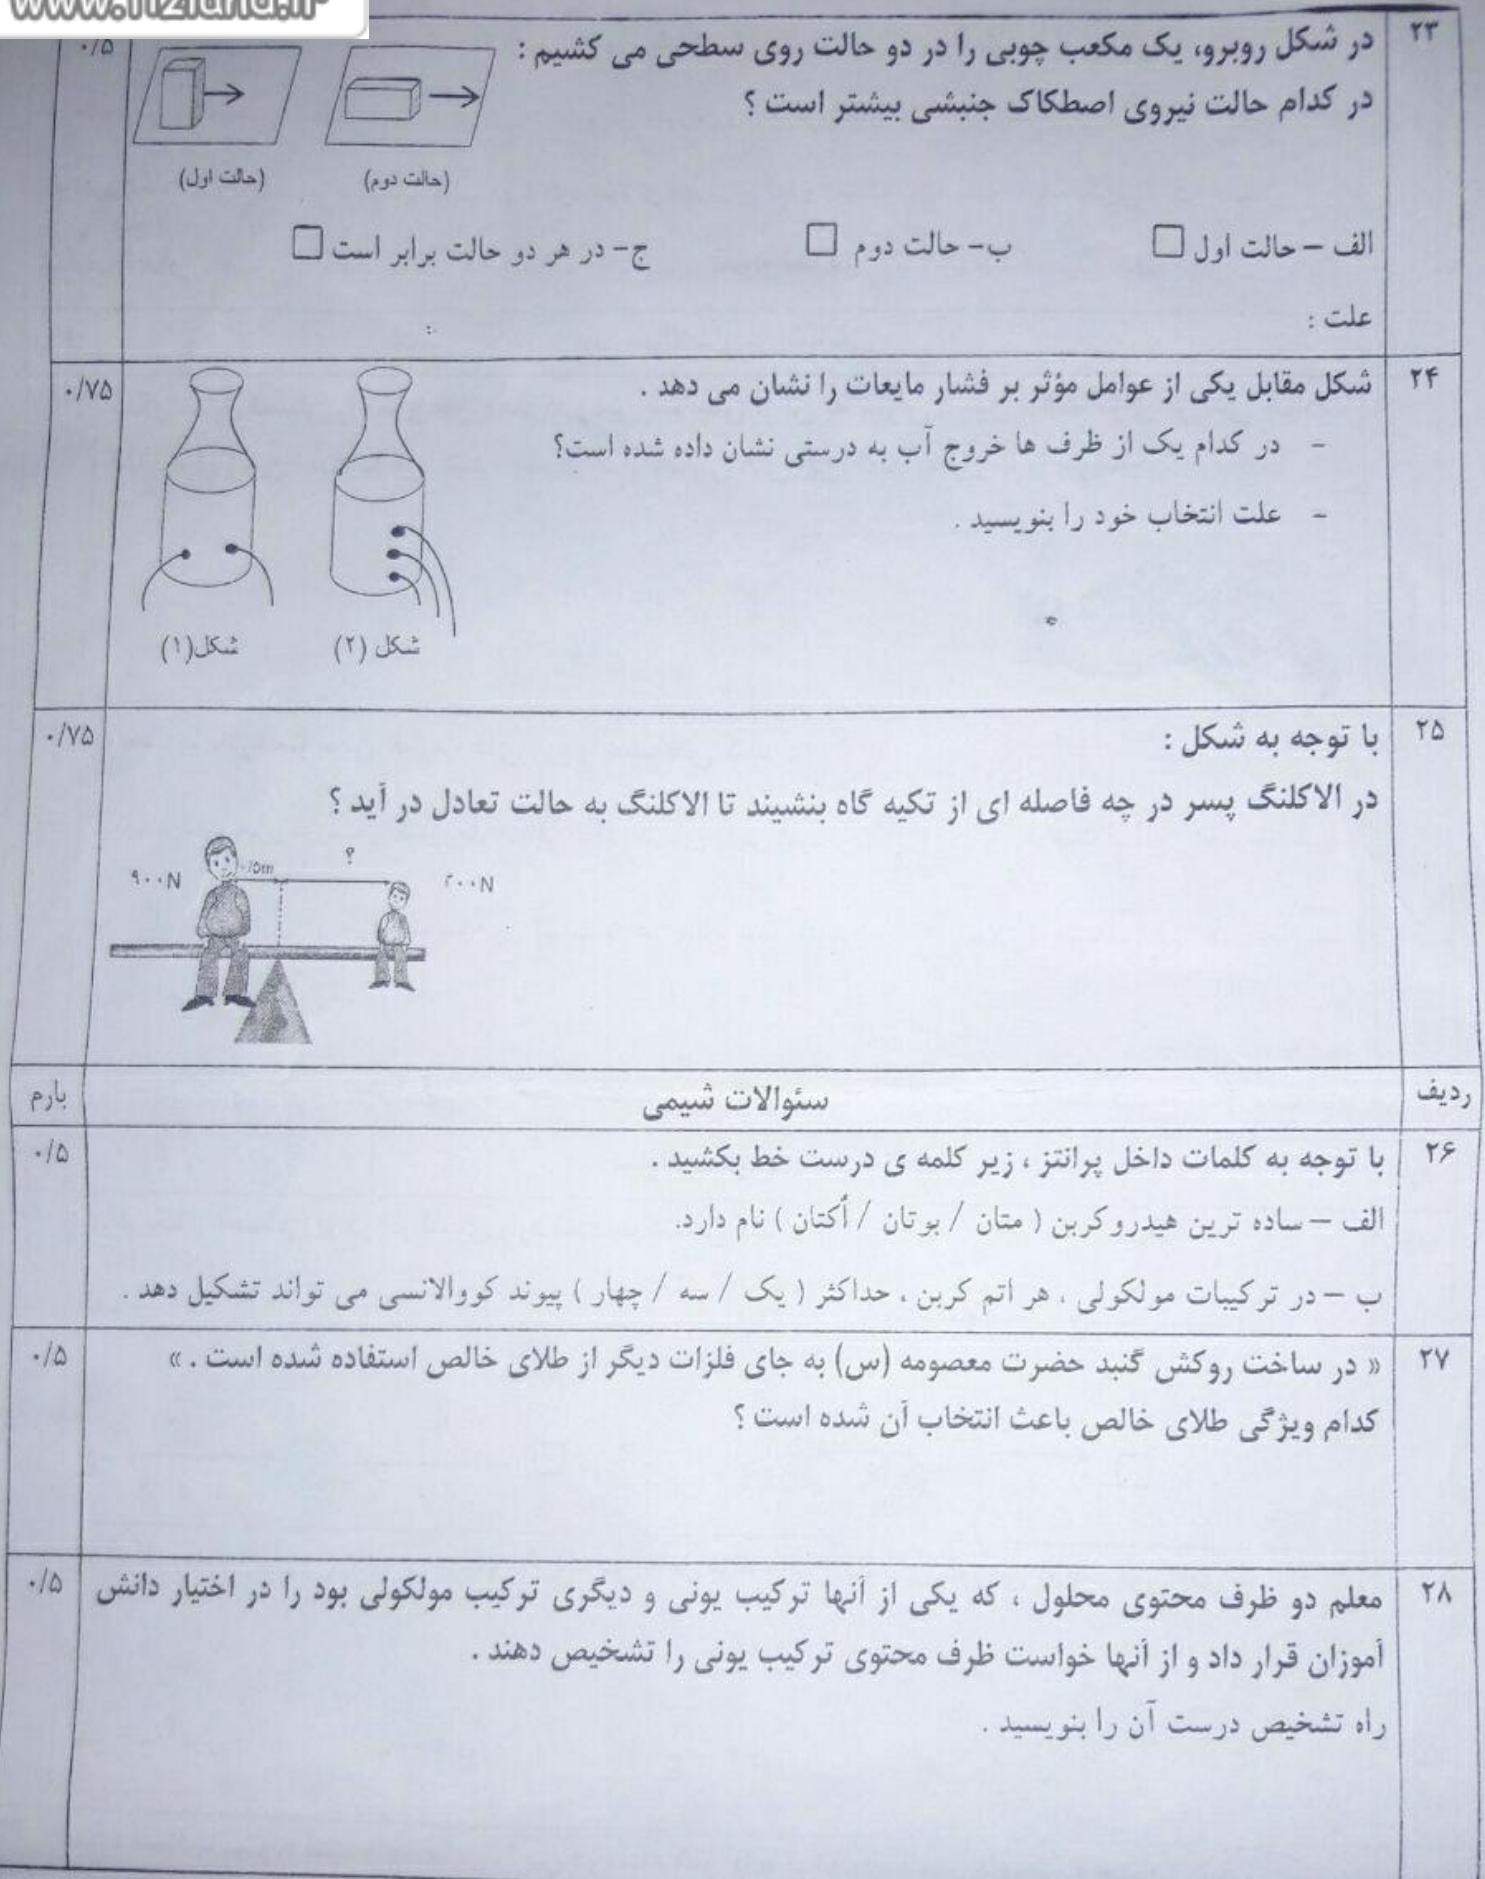 ۲۳
در شکل روبرو، یک مکعب چوبی را در دو حالت روی سطحی می کشیم :
۰/۵
در کدام حالت نیروی اصطکاک جنبشی بیشتر است ؟
(حالت دوم)
(حالت اول)
الف – حالت اول □ ب- حالت دوم □ ج- در هر دو حالت برابر است □
علت :
۲۴
شکل مقابل یکی از عوامل مؤثر بر فشار مایعات را نشان می دهد .
۰/۷۵
- در کدام یک از ظرف ها خروج آب به درستی نشان داده شده است؟
- علت انتخاب خود را بنویسید .
شکل (۲)
شکل(۱)
۲۵
با توجه به شکل :
۰/۷۵
در الاکلنگ پسر در چه فاصله ای از تکیه گاه بنشیند تا الاکلنگ به حالت تعادل در آید ؟
؟
۹۰۰N
ردیف
سئوالات شیمی
بارم
۲۶
با توجه به کلمات داخل پرانتز ، زیر کلمه ی درست خط بکشید .
۰/۵
الف – ساده ترین هیدروکربن ( متان / بوتان / اُکتان ) نام دارد.
ب – در ترکیبات مولکولی ، هر اتم کربن ، حداکثر ( یک / سه / چهار ) پیوند کووالانسی می تواند تشکیل دهد .
۲۷
« در ساخت روکش گنبد حضرت معصومه (س) به جای فلزات دیگر از طلای خالص استفاده شده است . »
۰/۵
کدام ویژگی طلای خالص باعث انتخاب آن شده است ؟
۲۸
معلم دو ظرف محتوی محلول ، که یکی از آنها ترکیب یونی و دیگری ترکیب مولکولی بود را در اختیار دانش
۰/۵
آموزان قرار داد و از آنها خواست ظرف محتوی ترکیب یونی را تشخیص دهند .
راه تشخیص درست آن را بنویسید .